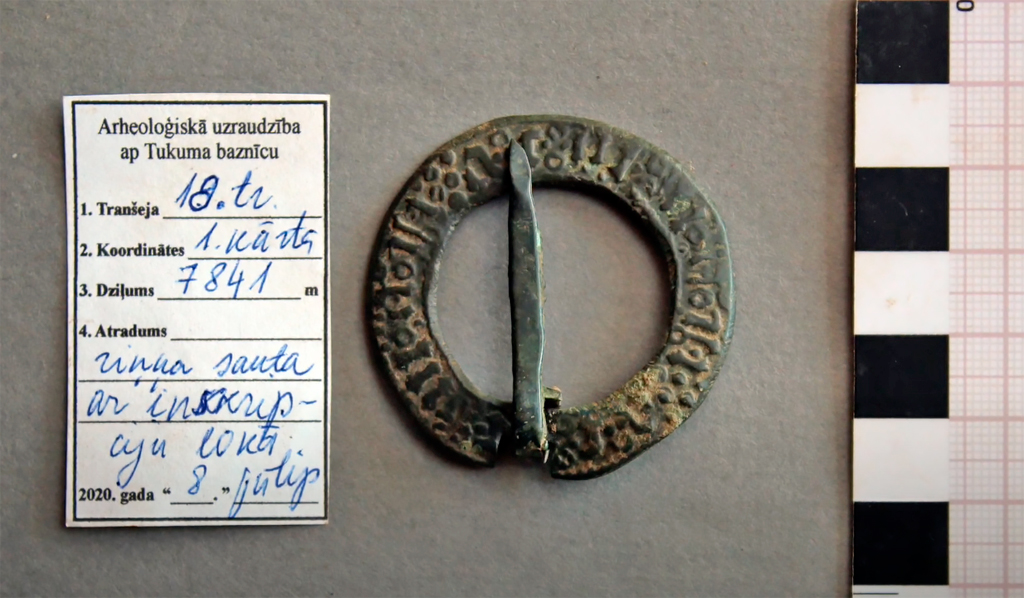 Arheoloģiskā uzraudzība
ap Tukuma baznīcu
1. Tranšeja 18. tr.
2. Koordinātes 1. kārta
3. Dziļums 7841 m
4. Atradums
riņķa sakta
ar inskrip-
ciju lokā.
2020. gada “ 8 .” jūlijs
0